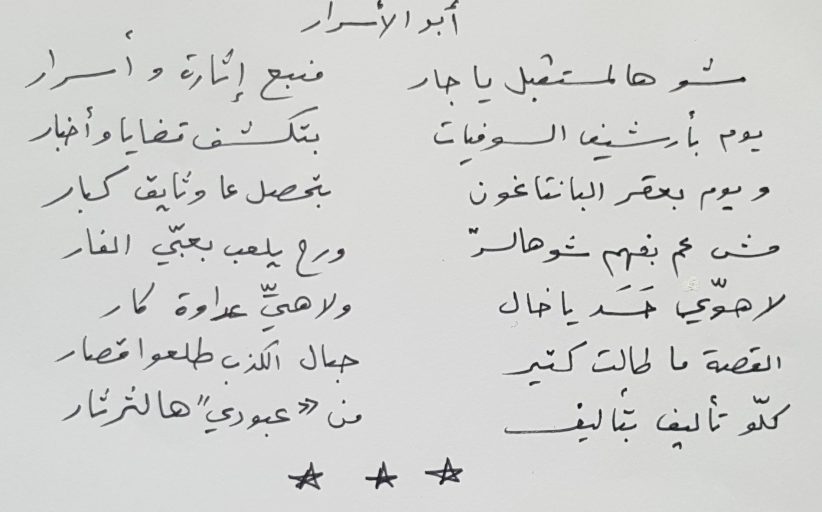 أبو الأسرار
شو هالمستقبل يا جار منبع إثارة و أسرار
يوم بأرشيف السوفيات بتكشف قضايا وأخبار
ويوم بعقر البانتاغون بتحصل عا وثايق كبار
مش عم بفهم شو هالسرّ ورح يلعب بعبّي الفار
لا هوّي حَسَد يا خال ولا هيِّ عداوة كار
القصة ما طالت كتير حبال الكذب طلعوا قصار
كلّو تأليف بتأليف من «عبودي" هالثرثار